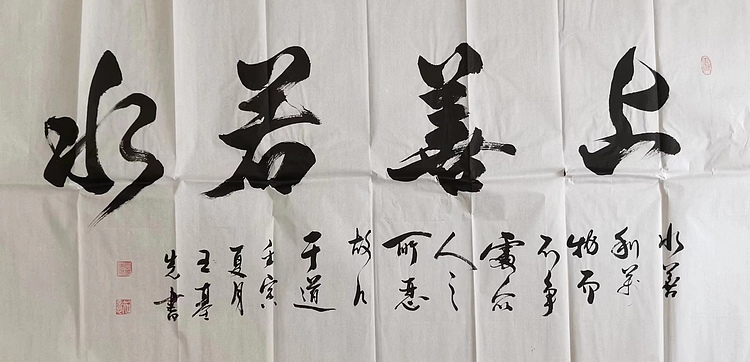 上善若水
水善
利萬
物而
不争
處众
人之
所惡
故几
于道
壬寅
夏月
王基
先書